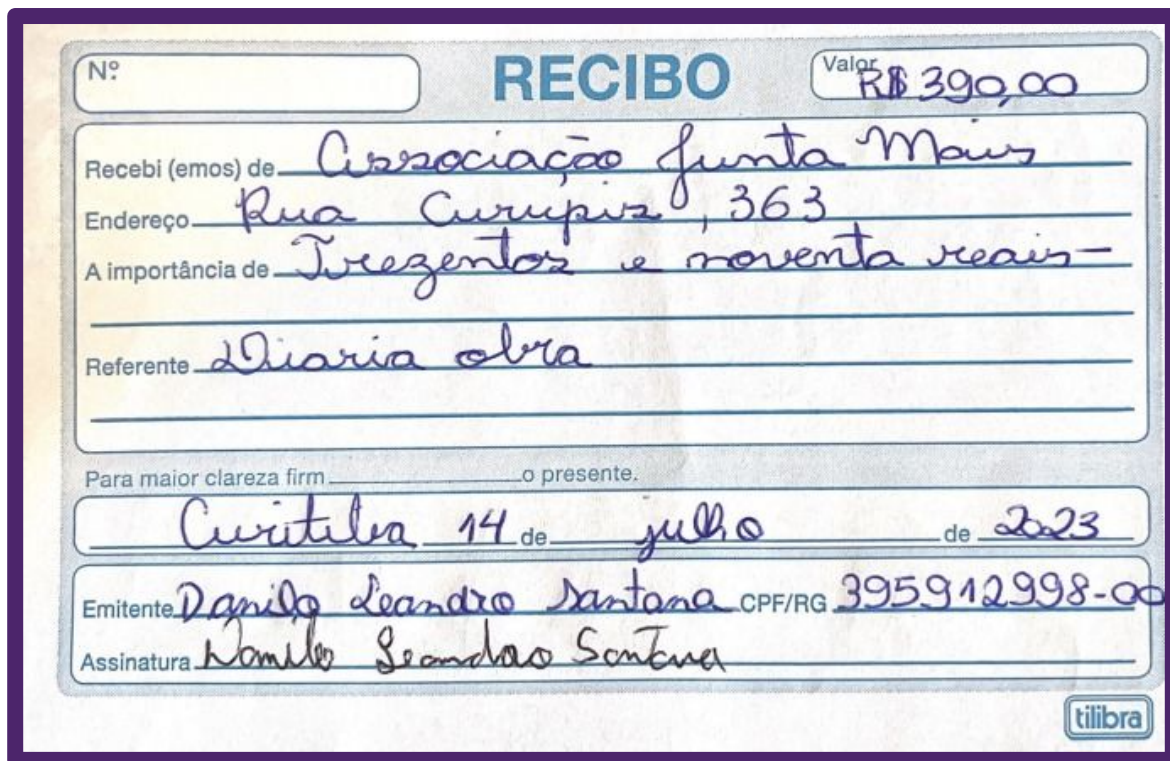 Nº
RECIBO
Valor R$ 390,00
Recebi (emos) de Associação Junta Mais
Endereço Rua Curupis, 363
A importância de Trezentos e noventa reais-
Referente Diaria obra
Para maior clareza firm o presente.
Curitiba 14 de julho de 2023
Emitente Danilo Leandro Santana CPF/RG 395912998-00
Assinatura Danilo Leandro Santana
tilibra